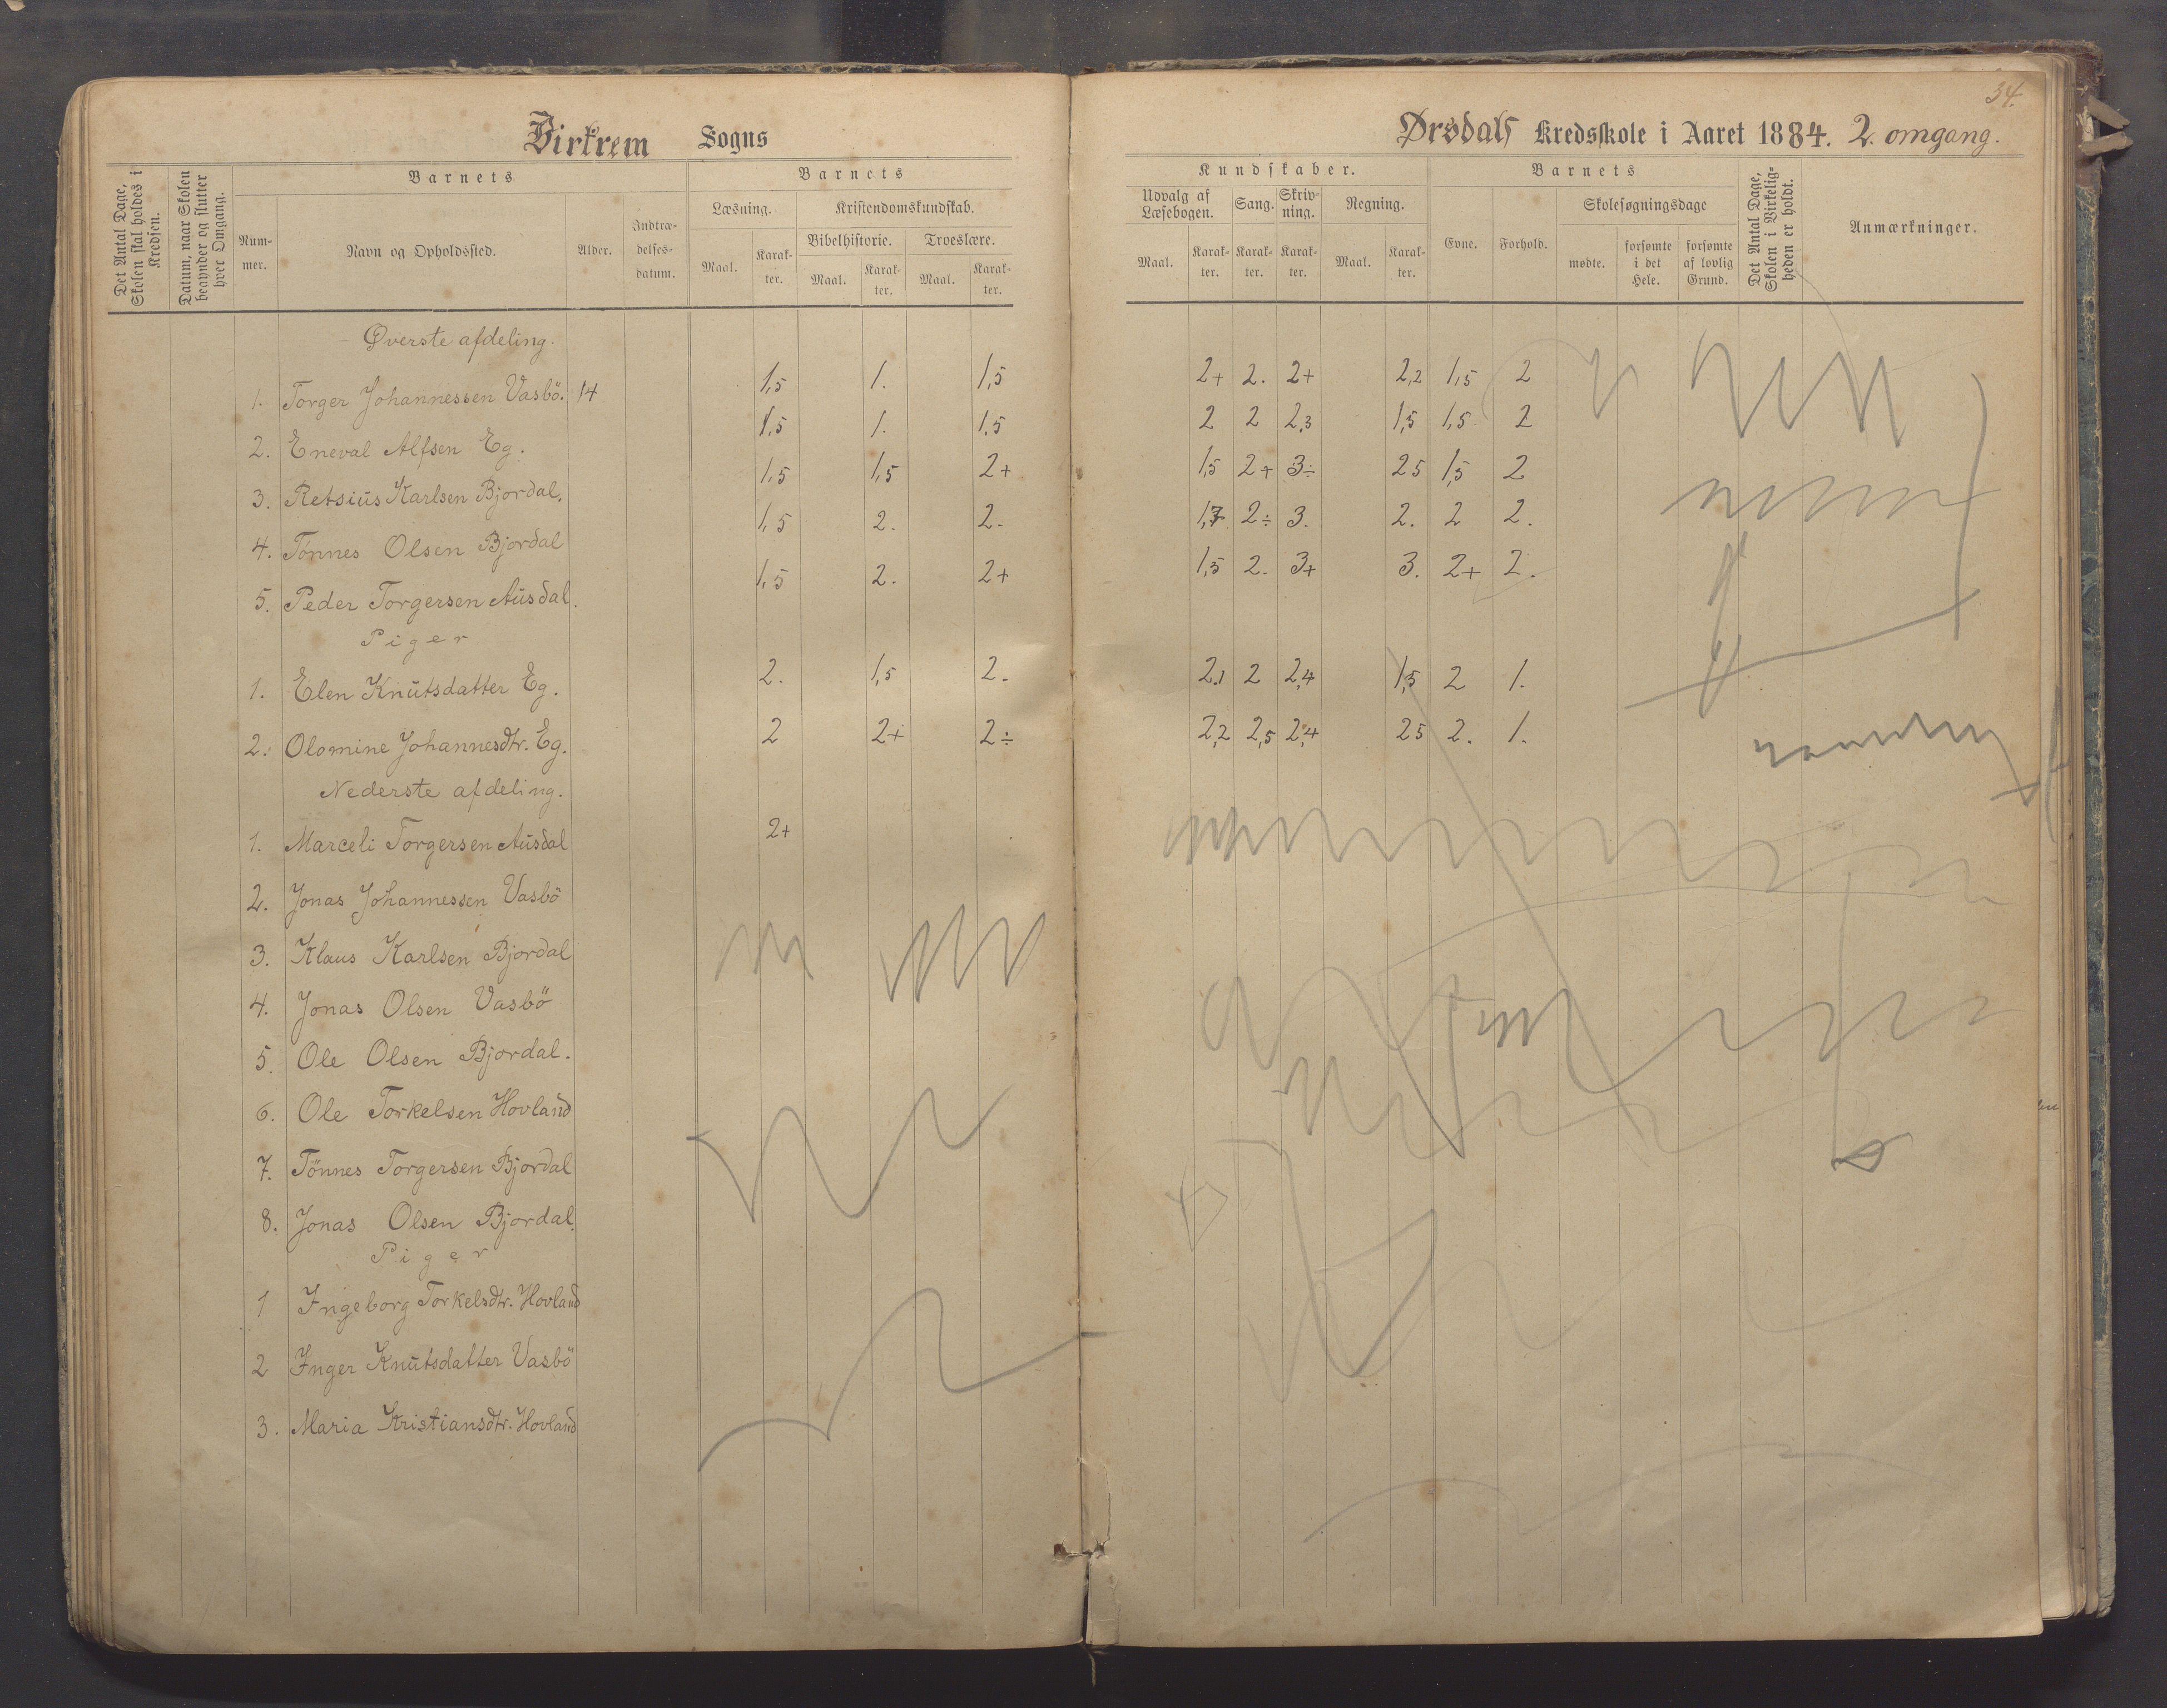 34.
Birkrem Sogns
Ørsdals Kredsskole i Aaret 1884. 2. omgang.
Det Antal Dage, Skolen skal holdes i Kredsen.
Datum, naar Skolen begynder og slutter hver Omgang.
Barnets
Nummer.
Navn og Opholdssted.
Alder.
Indtrædelsesdatum.
Barnets
Læsning.
Maal.
Karakter.
Kristendomskundskab.
Bibelhistorie.
Maal.
Karakter.
Troeslære.
Maal.
Karakter.
Kundskaber.
Udvalg af Læsebogen.
Maal.
Karakter.
Sang.
Karakter.
Skrivning.
Karakter.
Regning.
Maal.
Karakter.
Barnets
Evne.
Forhold.
Skolesøgningsdage
mødte.
forsømte i det Hele.
forsømte af lovlig Grund.
Det Antal Dage, Skolen i Virkeligheden er holdt.
Anmærkninger.
Øverste afdeling.
1. Torger Johannessen Vasbö. 14 1,5 1. 1,5 2+ 2. 2+ 2,2 1,5 2
2. Eneval Alfsen Eg. 1,5 1. 1,5 2 2 2,3 1,5 1,5 2
3. Retsius Karlsen Bjordal. 1,5 1,5 2+ 1,5 2+ 3÷ 25 1,5 2
4. Tönnes Olsen Bjordal 1,5 2. 2. 1,7 2÷ 3. 2. 2 2.
5. Peder Torgersen Ausdal. 1,5 2. 2+ 1,5 2. 3+ 3. 2+ 2.
Piger
1. Elen Knutsdatter Eg. 2. 1,5 2. 2,1 2 2,4 1,5 2 1.
2. Olomine Johannesdtr. Eg. 2 2+ 2÷ 2,2 2,5 2,4 25 2. 1.
Nederste afdeling.
1. Marceli Torgersen Ausdal 2+
2. Jonas Johannessen Vasbö
3. Klaus Karlsen Bjordal
4. Jonas Olsen Vasbö
5. Ole Olsen Bjordal.
6. Ole Torkelsen Hovland
7. Tönnes Torgersen Bjordal
8. Jonas Olsen Bjordal.
Piger
1 Ingeborg Torkelsdtr. Hovland
2 Inger Knutsdatter Vasbö
3. Maria Kristiansdtr. Hovland